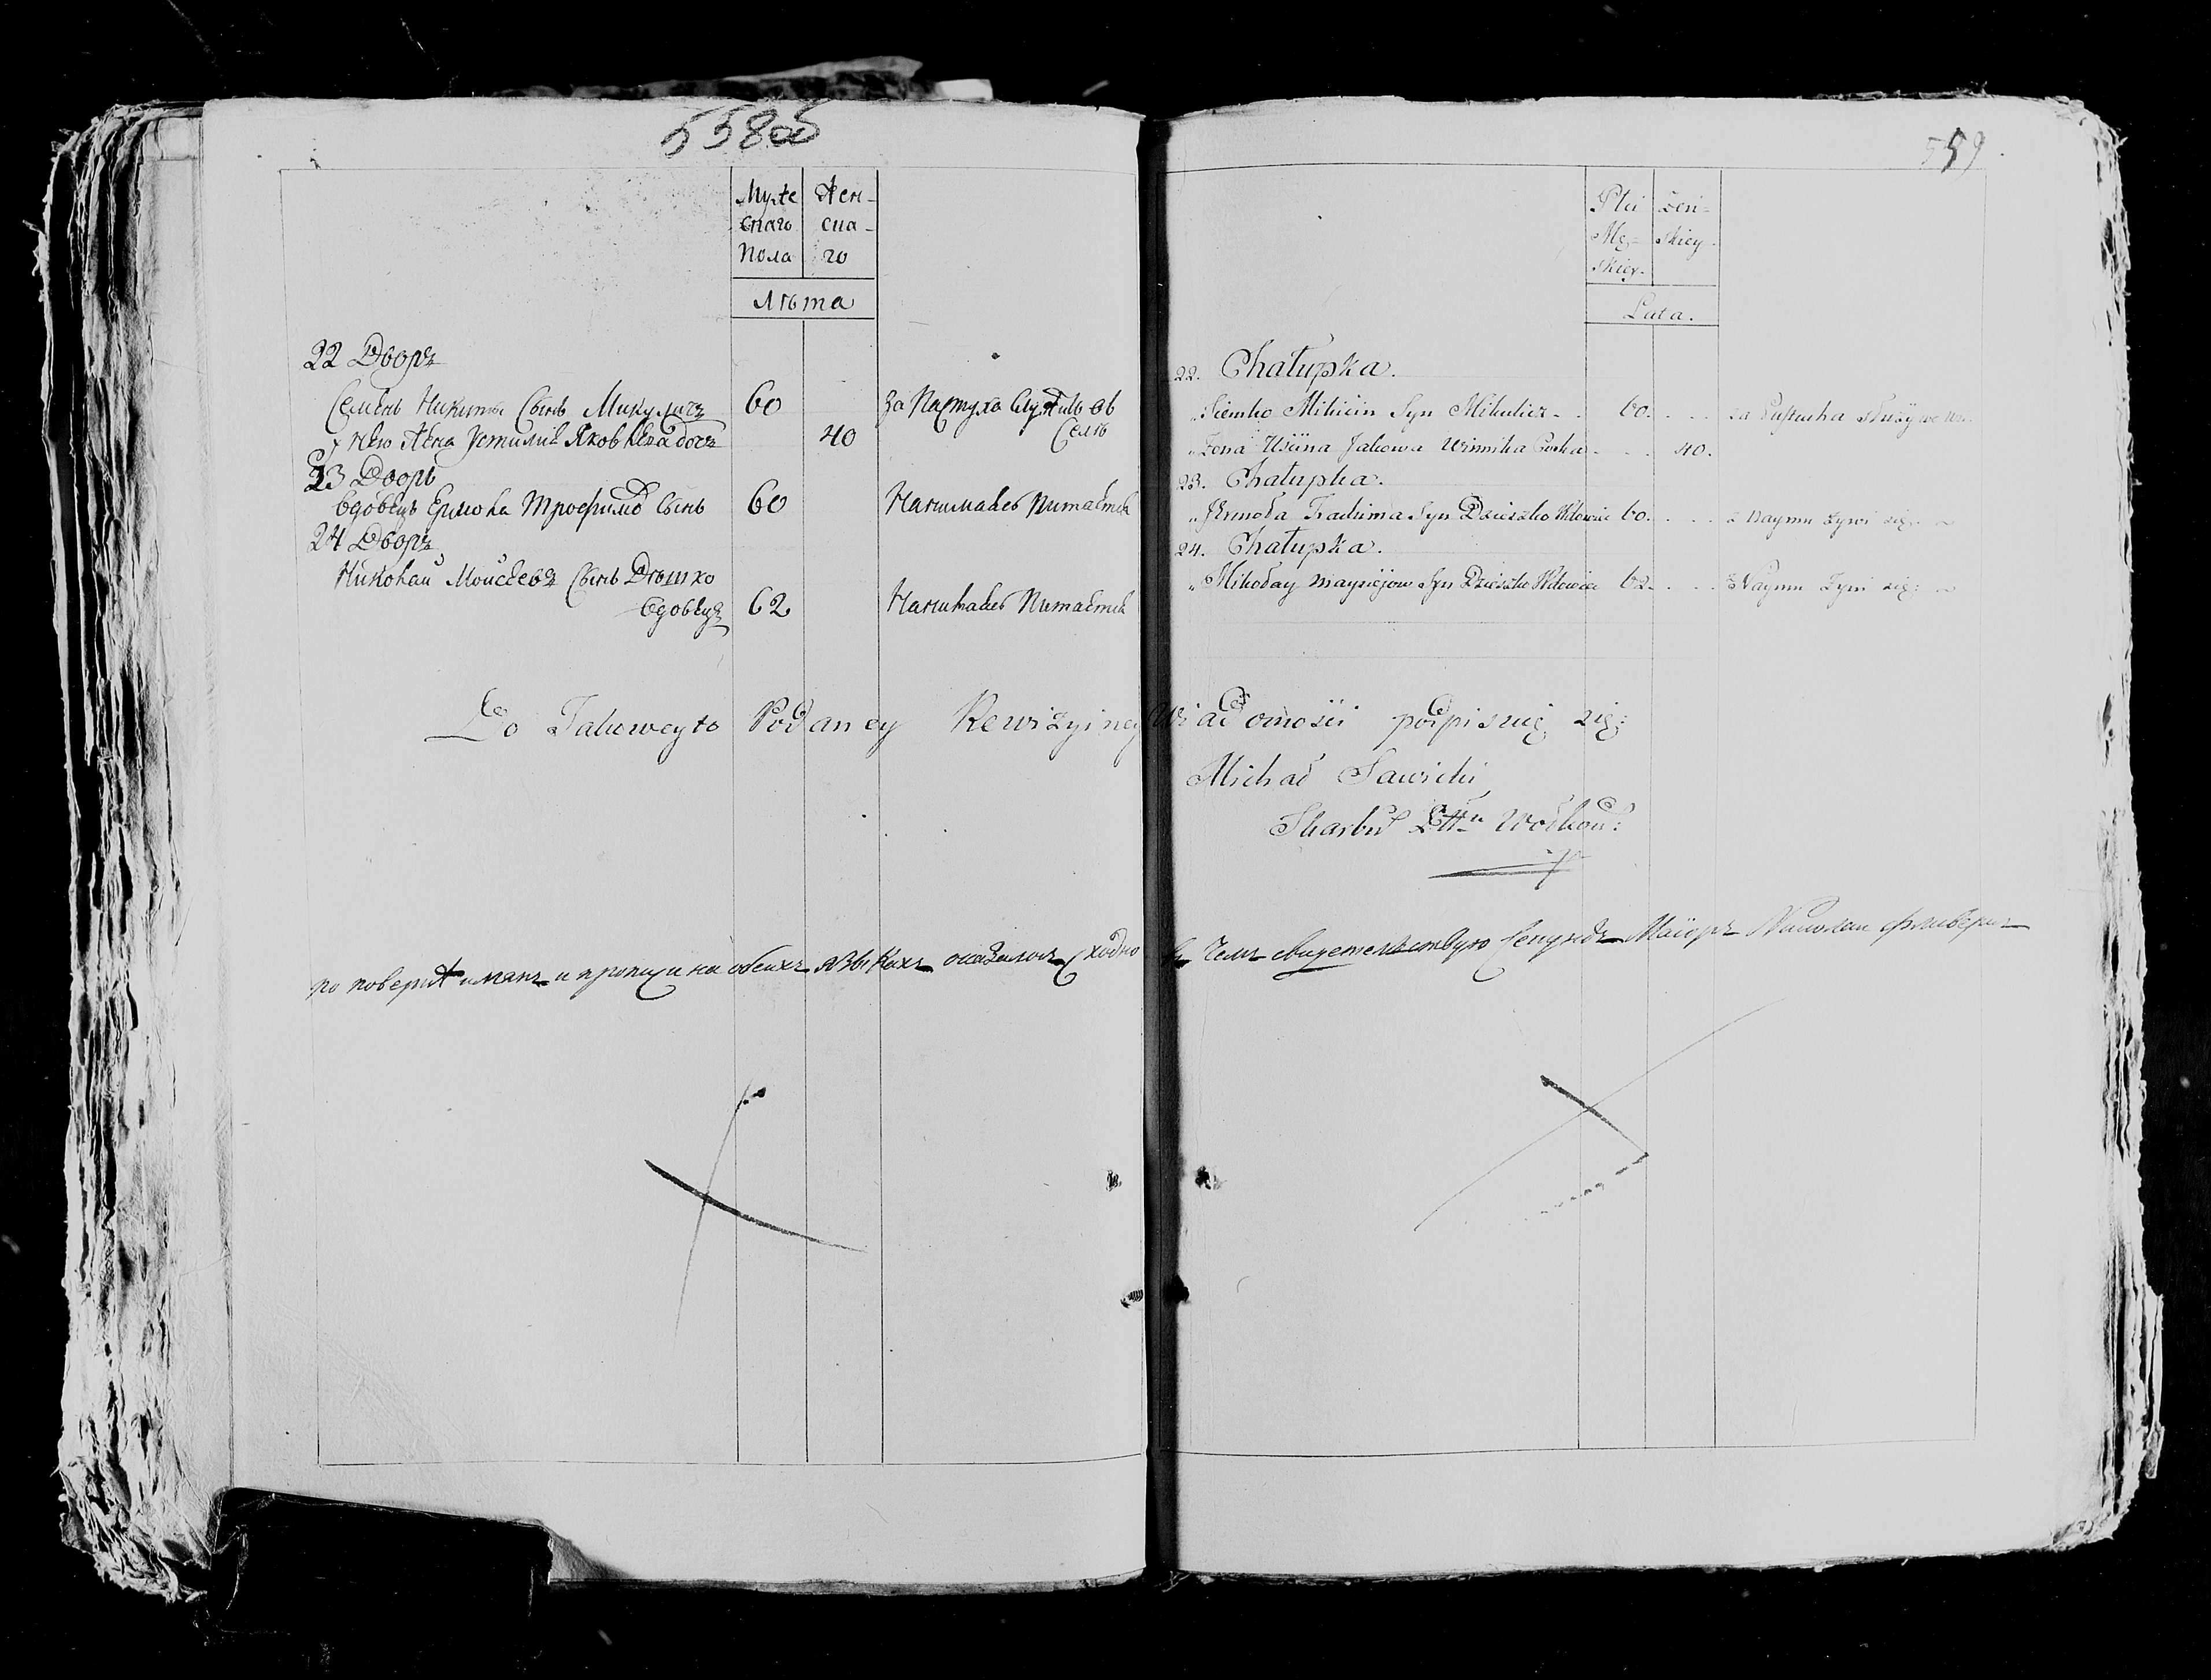 558об
Муже Жен-
скаго ска-
Пола го
Лѣта
22 Дворъ
Семенъ Никиты Сынъ Микуличъ 60 За Пастуха Служитъ въ
У нево Жена Устимия Яковлева дочь 40 Селѣ
23 Дворъ
Вдовецъ Ермола Трофимовъ Сынъ 60 Наимаясь Питается
24 Дворъ
Николай Моисеевъ Сынъ Дѣшко
Вдовецъ 62 Наимаясь Питается
559
Płci Żeń-
Mę- skiey
skiey.
Lata.
22. Chałupka.
Siemko Mikicin Syn Mikulicz 60. za Pastucha Służy we wsi
Żona Uścina Jakowa Winnika Corka 40.
23. Chałupka.
Jermoła Trachima Syn Dzieszko Wdowiec 60. z Naymu żywi się
24. Chałupka.
Mikołay Maysiejow Syn Dzieszko Wdowiec 62. z Naymu Żywi się
Do Takoweyto Podaney Rewizyiney Wiadomości podpisuię się:
Michał Sawicki
Skarbu
по поверке и на обеихъ языкахъ оказалось Сходно в чемъ свидетельствую Секундъ Маiоръ